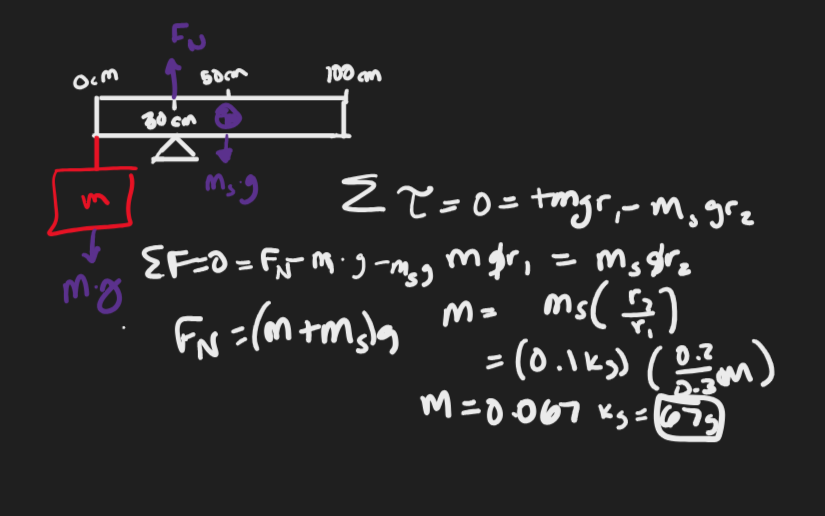 F_N
0cm 50cm 100cm
30cm
m
m_s·g
m·g
Στ = 0 = +mgr₁ - m_s gr₂
ΣF=0 = F_N - m·g - m_s g
mgr₁ = m_s gr₂
F_N = (m + m_s)g
m = m_s(r₂/r₁)
= (0.1kg) (0.2/0.3 m)
m = 0.067 kg = 67g